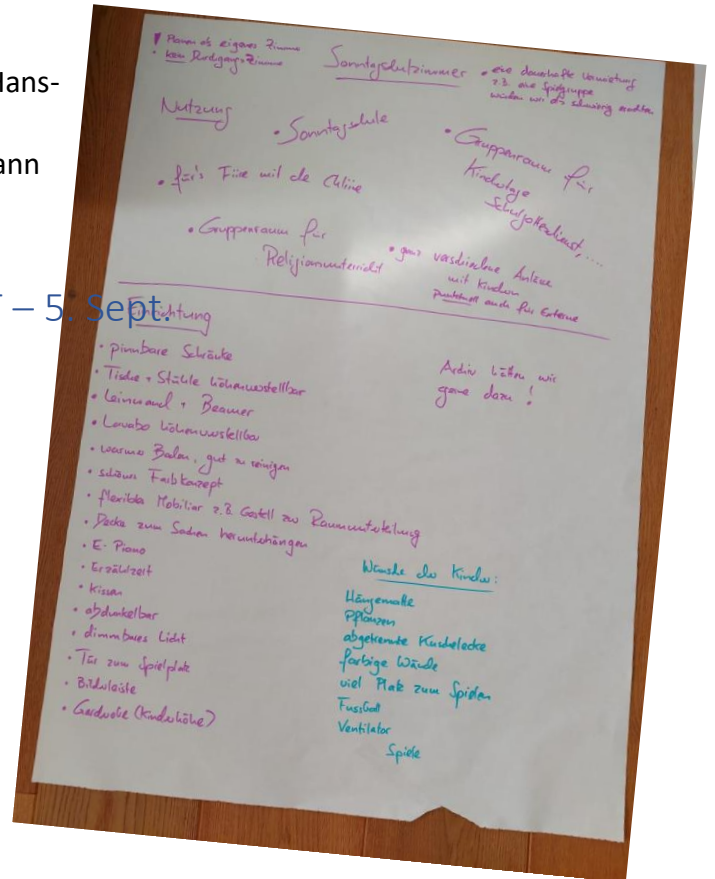 Hans-
ann
– 5. Sept.
! Planen als eigenes Zimmer
• kein Durchgangs-Zimmer
Sonntagschulzimmer
• eine dauerhafte Vermietung
z.B. eine Spielgruppe
würden wir als schwierig erachten
Nutzung
• Sonntagschule
• Gruppenraum für
Kindertage
Schulgottesdienst, ....
• für's Fiire mit de Chliine
• Gruppenraum für
Religionsunterricht
• ganz verschiedene Anlässe
mit Kindern
punktuell auch für Externe
Einrichtung
• pinnbare Schränke
• Tische + Stühle höhenverstellbar
• Leinwand + Beamer
• Lavabo höhenverstellbar
• warmer Boden, gut zu reinigen
• schönes Farbkonzept
• flexibles Mobiliar z.B. Gestell zur Raumunterteilung
• Decke zum Sachen herunterhängen
• E-Piano
• Erzählzeit
• Kissen
• abdunkelbar
• dimmbares Licht
• Tür zum Spielplatz
• Bilderleiste
• Garderobe (Kinderhöhe)
Archiv hätten wir
gerne dazu !
Wünsche der Kinder:
Hängematte
Pflanzen
abgetrennte Kuschelecke
farbige Wände
viel Platz zum Spielen
Fussball
Ventilator
Spiele